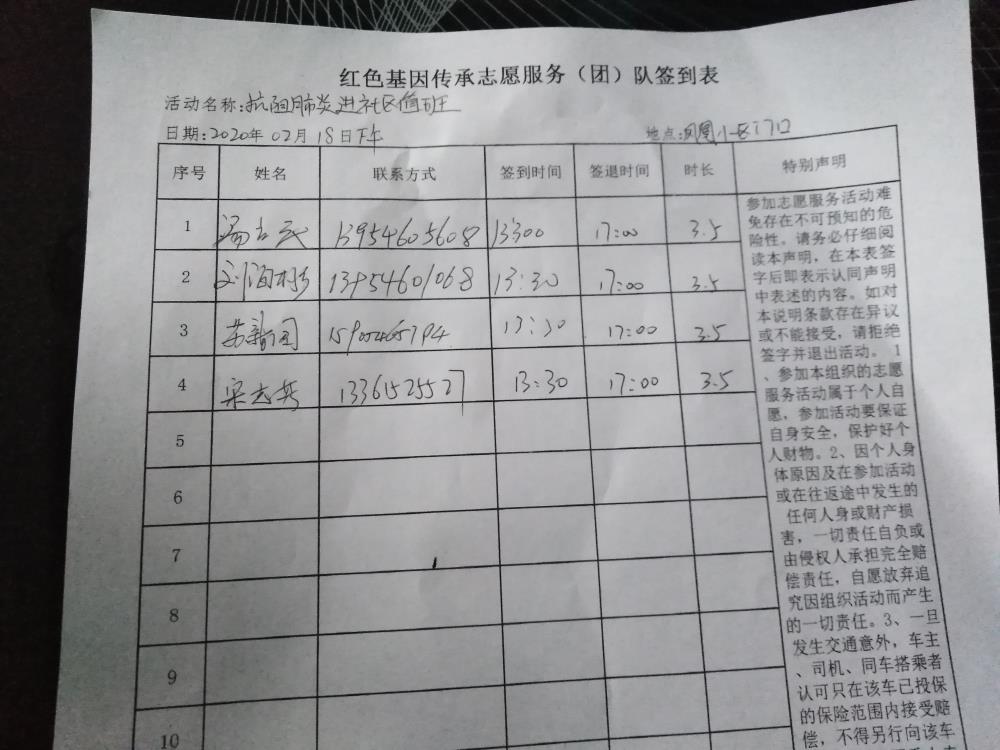 红色基因传承志愿服务（团）队签到表
活动名称:抗阻肺炎进社区值班
日期:2020年 02月 18日下午 地点:凤凰小区门口
序号 姓名 联系方式 签到时间 签退时间 时长 特别声明
1 13954605608 17:00 3.5
2 13954601068 13:30 17:00 3.5
3 13:30 17:00 3.5
4 13361525527 13:30 17:00 3.5
5
6
7
8
9
10
参加志愿服务活动难
免存在不可预知的危
险性。请务必仔细阅
读本声明，在本表签
字后即表示认同声明
中表述的内容。如对
本说明条款存在异议
或不能接受，请拒绝
签字并退出活动。 1
、参加本组织的志愿
服务活动属于个人自
愿，参加活动要保证
自身安全，保护好个
人财物。2、因个人身
体原因及在参加活动
或在往返途中发生的
任何人身或财产损
害，一切责任自负或
由侵权人承担完全赔
偿责任，自愿放弃追
究因组织活动而产生
的一切责任。3、一旦
发生交通意外，车主
、司机、同车搭乘者
认可只在该车已投保
的保险范围内接受赔
偿，不得另行向该车